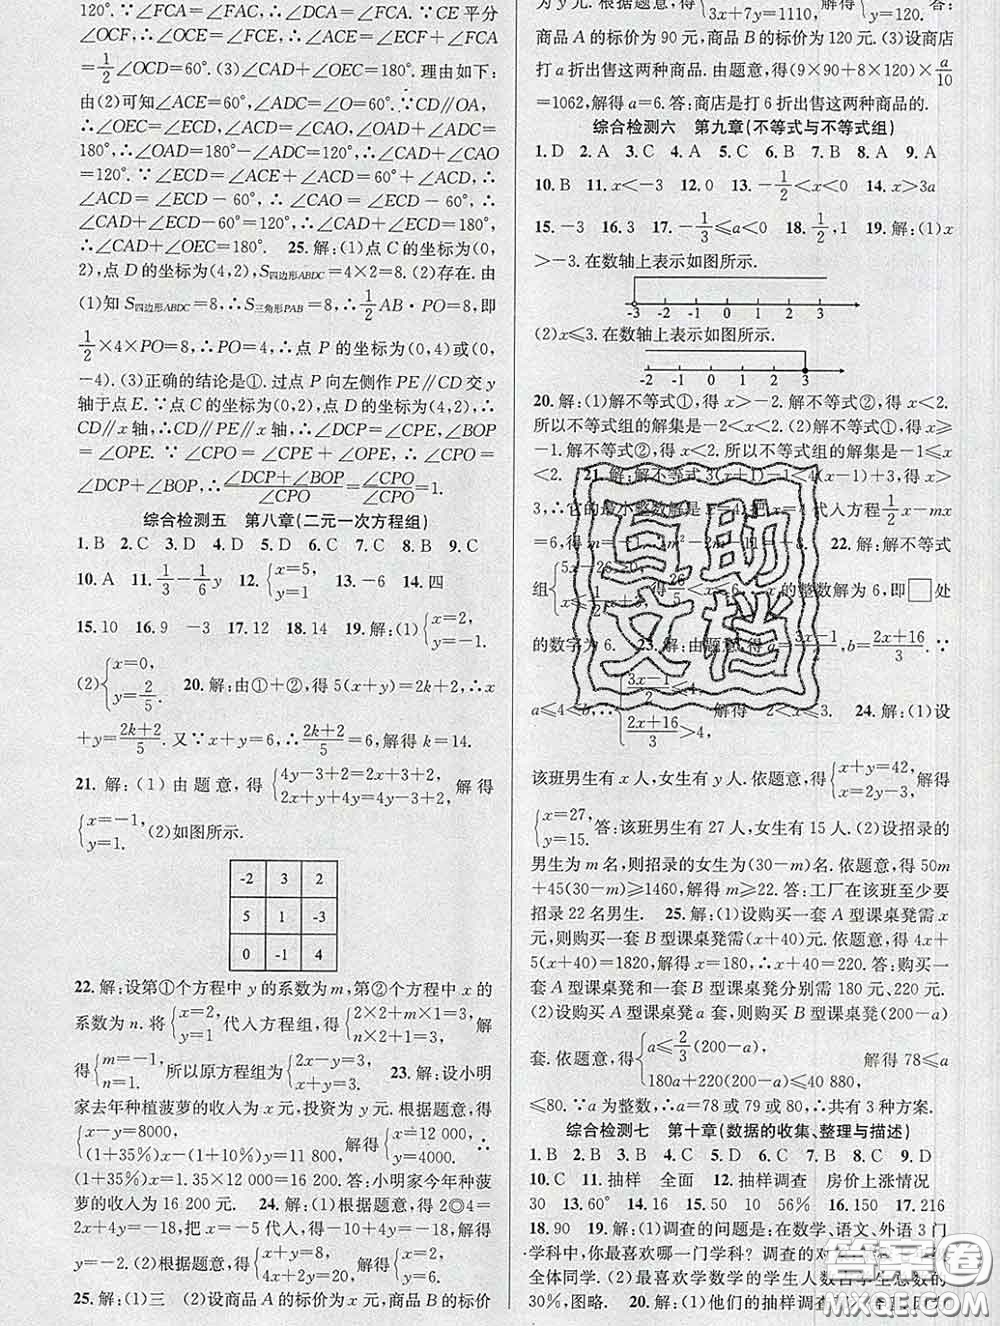 120°. ∵∠FCA=∠FCA, ∴∠DCA=∠FCA. ∵CE平分
∠OCF, ∴∠OCE=∠FCE. ∴∠ECF+∠FCA
=1/2∠OCD=60°. (3)∠CAD+∠OEC=180°. 理由如下:
由(2)可知∠ACE=60°, ∠ADC=∠O=60°. ∵CD∥OA,
∴∠OEC=∠ECD, ∴∠CAO=∠ACD, ∠OAD+∠ADC=
180°, ∴∠OAD=180°-∠ADC=120°, ∴∠CAD+∠CAO
=120°. ∵∠ECD=∠ACE+∠ACD=60°+∠ACD,
∴∠ACD=∠ECD-60°, ∴∠CAO=∠ECD-60°,
∴∠CAD+∠ECD-60°=120°, ∴∠CAD+∠ECD=180°,
∴∠CAD+∠OEC=180°. 25. 解:(1)点C的坐标为(0,
2), 点D的坐标为(4,2), S四边形ABDC=4×2=8. (2)存在. 由
(1)知S四边形ABDC=8, ∴S三角形PAB=8, ∴1/2 AB·PO=8, 即
1/2×4×PO=8, ∴PO=4, ∴点P的坐标为(0,4)或(0,
-4). (3)正确的结论是①. 过点P向左侧作PE∥CD交y
轴于点E. ∵点C的坐标为(0,2), 点D的坐标为(4,2), ∴
CD∥x轴, ∴CD∥PE∥x轴, ∴∠DCP=∠CPE, ∠BOP
=∠OPE. ∵∠CPO=∠CPE+∠OPE, ∴∠CPO=
∠DCP+∠BOP, ∴(∠DCP+∠BOP)/∠CPO=∠CPO/∠CPO=1.
综合检测五 第八章(二元一次方程组)
1. B 2. C 3. D 4. D 5. D 6. C 7. C 8. B 9. C
10. A 11. 1/3-1/6y 12. {x=5, y=1 13. -6 14. 四
15. 10 16. 9 -3 17. 12 18. 14 19. 解:(1){x=2, y=-1.
(2){x=0, y=2/5. 20. 解:由①+②, 得5(x+y)=2k+2, ∴x
+y=(2k+2)/5. 又∵x+y=6, ∴(2k+2)/5=6, 解得k=14.
21. 解:(1)由题意, 得{4y-3+2=2x+3+2, 2x+y+4y=4y-3+2, 解得
{x=-1, y=1. (2)如图所示.
-2 3 2
5 1 -3
0 -1 4
22. 解:设第①个方程中y的系数为m, 第②个方程中x的
系数为n. 将{x=2, y=1代入方程组, 得{2×2+m×1=3, 2×n+1=3, 解
得{m=-1, n=1. 所以原方程组为{2x-y=3, x+y=3. 23. 解:设小明
家去年种植菠萝的收入为x元, 投资为y元. 根据题意, 得
{x-y=8000, (1+35%)x-(1+10%)y=11800, 解得{x=12 000, y=4 000. ∴
(1+35%)x=1.35×12 000=16 200. 答:小明家今年种菠
萝的收入为16 200元. 24. 解:(1)根据题意, 得2◎4=
2x+4y=-18, 把x=-5代入, 得-10+4y=-18, 解得
y=-2. (2)根据题意, 得{x+y=1, 2x+4y=-18, 解得{x=
y=
25. 解:(1)三 (2)设商品A的标价为x元, 商品B的标价
为y元. 根据题意, 得
3x+7y=1110, 解得{
y=120. 答:
商品A的标价为90元, 商品B的标价为120元. (3)设商店
打a折出售这两种商品. 由题意, 得(9×90+8×120)×a/10
=1062, 解得a=6. 答:商店是打6折出售这两种商品的.
综合检测六 第九章(不等式与不等式组)
1. D 2. A 3. C 4. A 5. C 6. B 7. B 8. A 9. A
10. B 11. x<-3 12. 0 13. -1/2<x<0 14. x>3a
15. -3 16. 3 17. -1/3≤a<0 18. 1/2, 1 19. 解:(1)x
>-3. 在数轴上表示如图所示.
-3 -2 -1 0 1 2 3
(2)x≤3. 在数轴上表示如图所示.
-2 -1 0 1 2 3
20. 解:(1)解不等式①, 得x>-2. 解不等式②, 得x<2.
所以不等式组的解集是-2<x<2. (2)解不等式①, 得x≥
-1. 解不等式②, 得x<2. 所以不等式组的解集是-1≤x
<2. 21. 解:解不等式
(x-1)+3, 得x
>3, ∴它的最小整数解是x=4. 把x=4代入方程1/2x-mx
=6, 得m=-1, 22. 解:解不等式
组
的整数解为6, 即□处
的数字为6. 23. 解:由题意, 得a=(3x-1)/2, b=(2x+16)/3. ∵
a≤4<b, ∴{(3x-1)/2≤4, (2x+16)/3>4, 解得-2<x≤3. 24. 解:(1)设
该班男生有x人, 女生有y人. 依题意, 得{x+y=42, x=2y-3, 解得
{x=27, y=15. 答:该班男生有27人, 女生有15人. (2)设招录的
男生为m名, 则招录的女生为(30-m)名. 依题意, 得50m
+45(30-m)≥1460, 解得m≥22. 答:工厂在该班至少要
招录22名男生. 25. 解:(1)设购买一套A型课桌凳需x
元, 则购买一套B型课桌凳需(x+40)元. 依题意, 得4x+
5(x+40)=1820, 解得x=180, ∴x+40=220. 答:购买一
套A型课桌凳和一套B型课桌凳分别需180元、220元.
(2)设购买A型课桌凳a套, 则购买B型课桌凳(200-a)
套. 依题意, 得{a≤2/3(200-a), 180a+220(200-a)≤40 880, 解得78≤a
≤80. ∵a为整数, ∴a=78或79或80, ∴共有3种方案.
综合检测七 第十章(数据的收集、整理与描述)
1. B 2. C 3. D 4. B 5. A 6. B 7. C 8. D 9. D
10. C 11. 抽样 全面 12. 抽样调查 房价上涨情况
30 13. 60° 14. 16 15. 50 10 56% 16. 150 17. 216
18. 90 19. 解:(1)调查的问题是:在数学、语文、外语3门
学科中, 你最喜欢哪一门学科? 调查的对
全体同学. (2)最喜欢学数学的学生人数占学生总数的
30%, 图略. 20. 解:(1)他们的抽样调查
互助
文档
答案卷